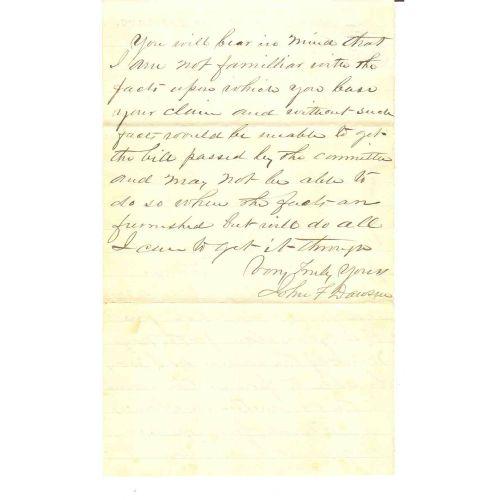 You will bear in mind that
I am not familliar with the
facts upon which you base
your claim and without such
facts would be unable to get
the bill passed by the committee
and may not be able to
do so when the facts are
furnished but will do all
I can to get it through
Very Truly Yours
John F Dawson